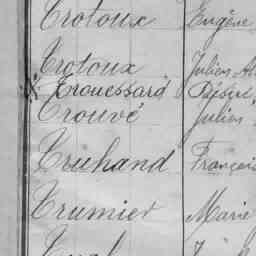 Trotoux Eugène
Trotoux Julien
Trouessard Désiré
Trouvé Julien
Truhand François
Trumier Marie